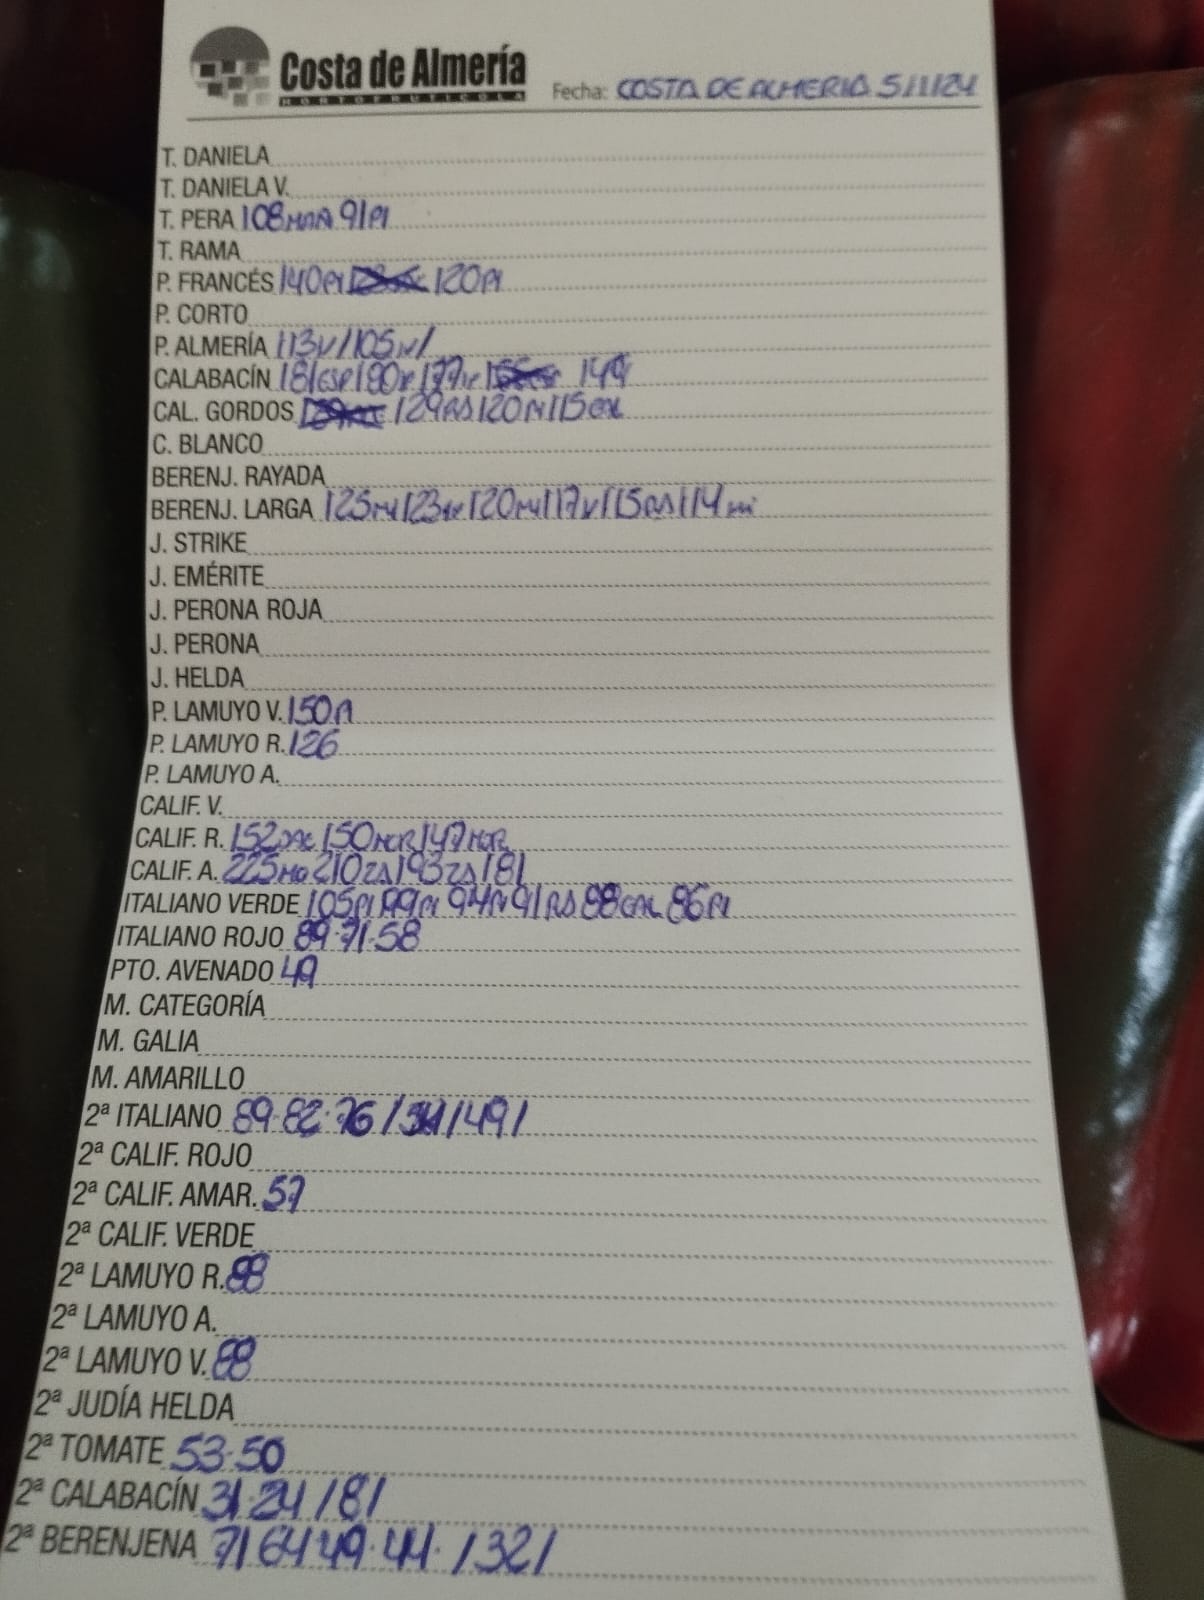 Costa de Almería
HORTOFRUTICOLA
Fecha: COSTA DE ALMERIA 5/1/24
T. DANIELA
T. DANIELA V.
T. PERA 108 91PI
T. RAMA
P. FRANCÉS 140PI 120PI
P. CORTO
P. ALMERÍA 113V/105N/
CALABACÍN 181 180 177 149
CAL. GORDOS 129RS 120N 115
C. BLANCO
BERENJ. RAYADA
BERENJ. LARGA 125 123 120 117V 115RS 114
J. STRIKE
J. EMÉRITE
J. PERONA ROJA
J. PERONA
J. HELDA
P. LAMUYO V. 150
P. LAMUYO R. 126
P. LAMUYO A.
CALIF. V.
CALIF. R. 152 150MCR 147MCR
CALIF. A. 225MO 210ZA 193ZA 181
ITALIANO VERDE 105PI 99PI 94PI 91RS 88GAL 86PI
ITALIANO ROJO 89-71-58
PTO. AVENADO 49
M. CATEGORÍA
M. GALIA
M. AMARILLO
2ª ITALIANO 89-82-76/ /49/
2ª CALIF. ROJO
2ª CALIF. AMAR. 57
2ª CALIF. VERDE
2ª LAMUYO R. 88
2ª LAMUYO A.
2ª LAMUYO V. 88
2ª JUDÍA HELDA
2ª TOMATE 53-50
2ª CALABACÍN 31-24/8/
2ª BERENJENA 71 64 49-44-/32/